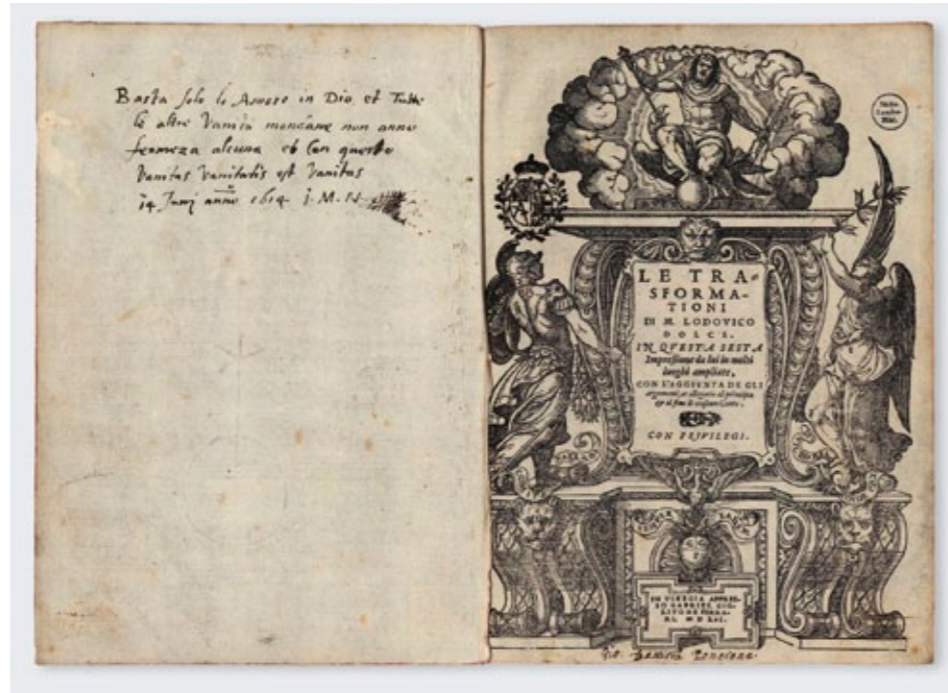 Basta solo lo Amore in Dio et Tutte
le altre Vanità mondane non anno
fermeza alcuna et Con questo
Vanitas Vanitatis est Vanitas
14 Junij anno 1614 J. M. N.
LE TRA-
SFORMA-
TIONI
DI M. LODOVICO
DOLCE.
IN QVESTA SESTA
Impressione da lui in molti
luoghi ampliate,
CON L'AGGIVNTA DE GLI
argomenti, et allegorie al principio
et al fine di ciascun Canto.
CON PRIVILEGI.
IN VINEGIA APPRES-
SO GABRIEL GIO-
LITO DE FERRA-
RI.
Gio. Battista